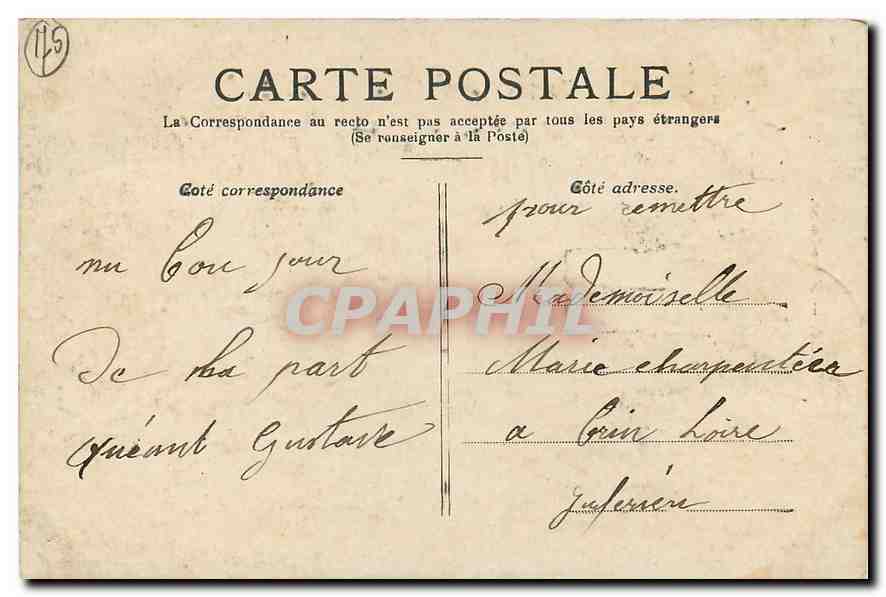 175
CARTE POSTALE
La Correspondance au recto n'est pas acceptée par tous les pays étrangers
(Se renseigner à la Poste)
Coté correspondance
nu bon jour
De la part
Quéant Gustave
Côté adresse.
pour remettre
Mademoiselle
Marie charpentier
a Loire
CPAPHIL